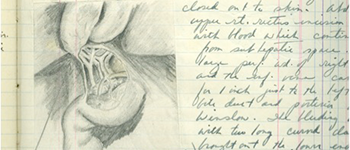 closed out to skin. Abd
upper rt. rectus incision
with blood which
from subhepatic space
large of right
and the
for 1 inch just to the left
bile duct and posterior
Winslow. The bleeding
with two long curved
brought out the lower